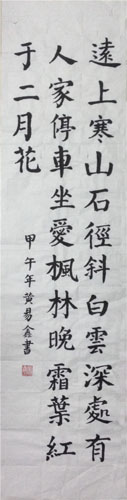 遠上寒山石徑斜白雲深處有
人家停車坐愛楓林晚霜葉紅
于二月花
甲午年黄易鑫書